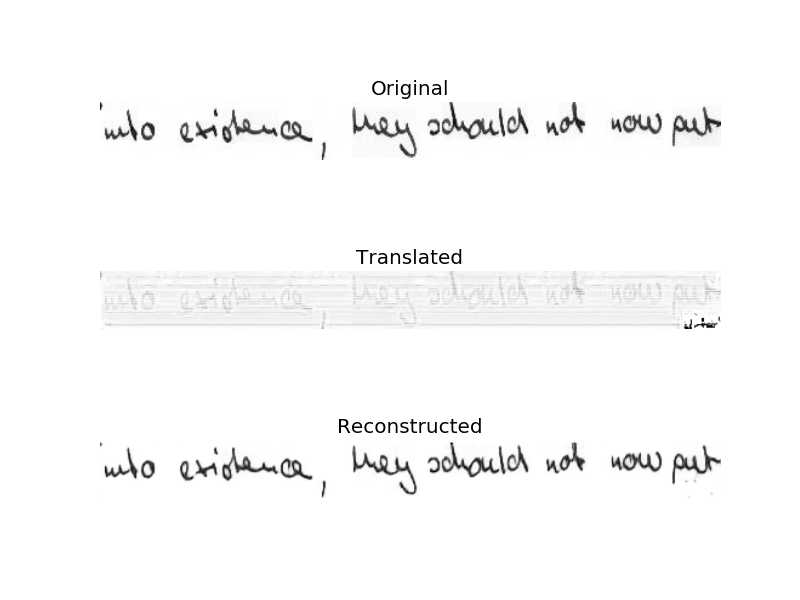 Original
into existence, they schould not now put
Translated
into existence, they schould not now put
Reconstructed
into existence, they schould not now put